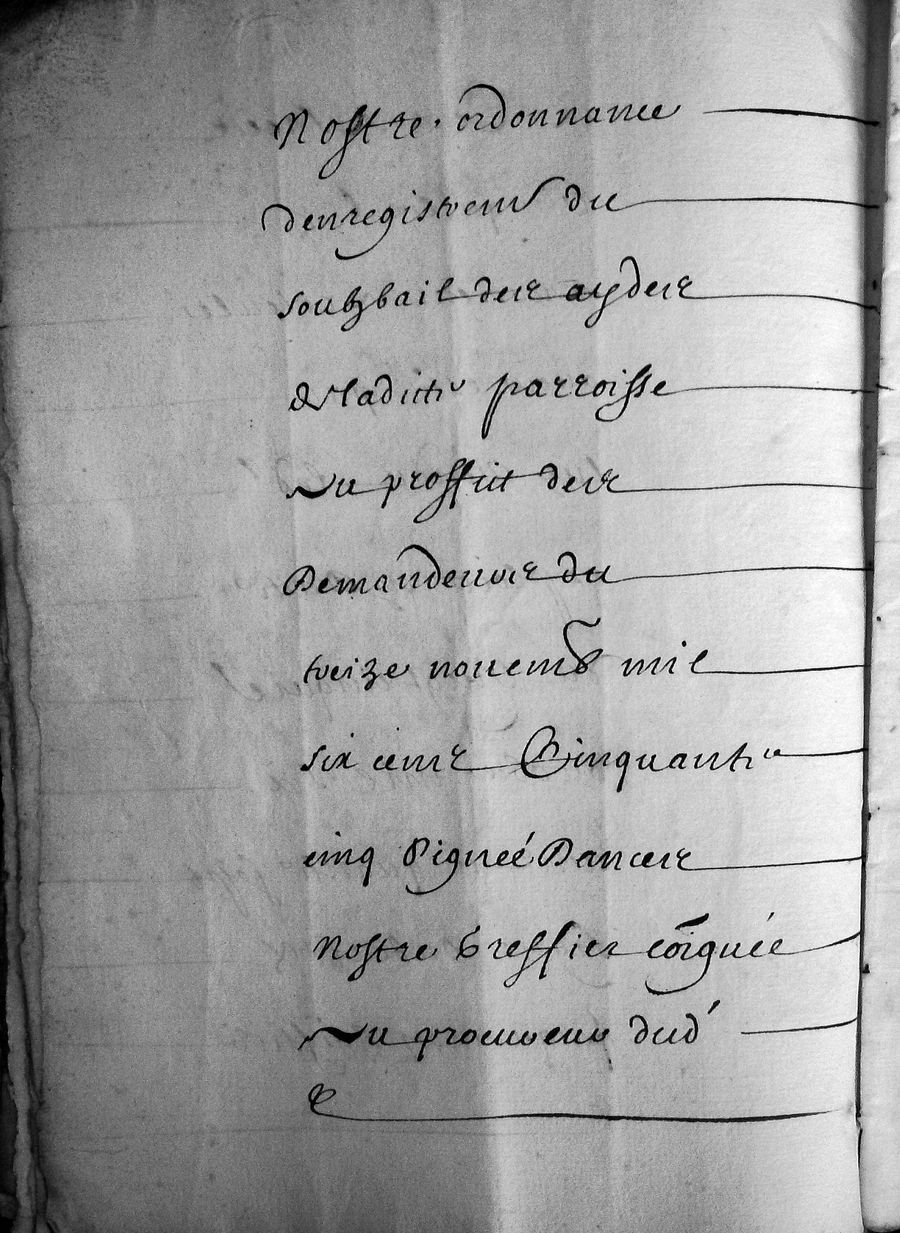 Nostre ordonnance
denregistrem̃t du
soubzbail des aydes
de ladicte parroisse
Au proffict des
Demandeurs du
treize nouemb mil
six cens Cinquante
cinq Signée Dances
Nostre Greffier coïgnée
Au procureur dud'
&